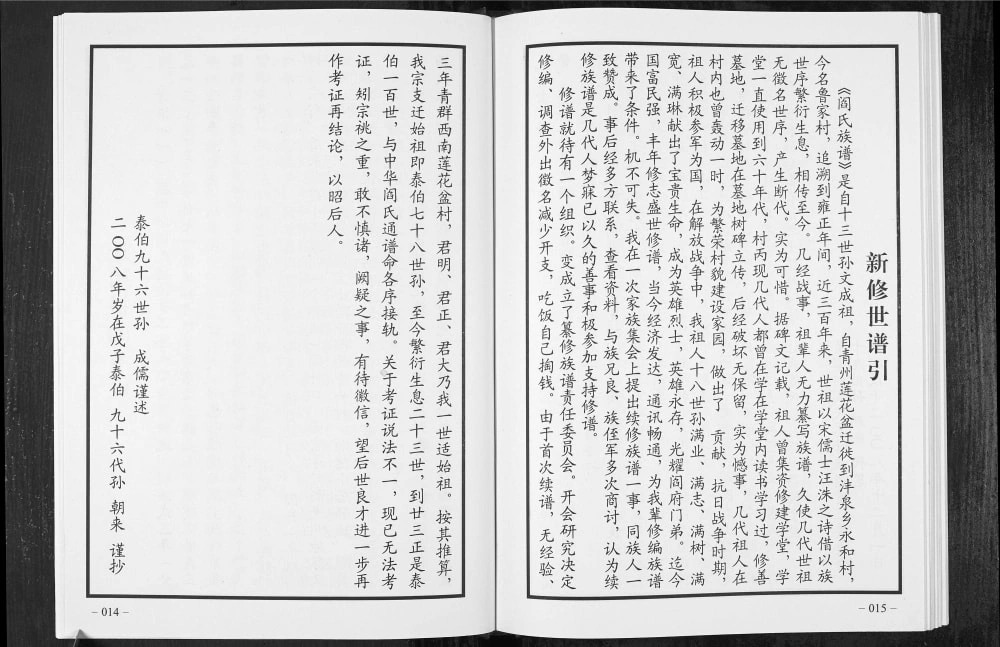 新修世谱引
《阎氏族谱》是自十三世孙文成祖，自青州莲花盆迁徙到沣泉乡永和村，
今名鲁家村，追溯到雍正年间，近三百年来，世祖以宋儒士汪洙之诗借以族
世序繁衍生息，相传至今。几经战事，祖辈人无力纂写族谱，久使几代世祖
无徵名世序，产生断代。实为可惜。据碑文记载，祖人曾集资修建学堂，学
堂一直使用到六十年代，村丙现几代人都曾在学在学堂内读书学习过，修善
墓地，迁移墓地在墓地树碑立传，后经破坏无保留，实为憾事，几代祖人在
村内也曾轰动一时，为繁荣村貌建设家园，做出了 贡献，抗日战争时期，
祖人积极参军为国，在解放战争中，我祖人十八世孙满业、满志、满树、满
宽、满琳献出了宝贵生命，成为英雄烈士，英雄永存，光耀阎府门弟。迄今
国富民强，丰年修志盛世修谱，当今经济发达，通讯畅通，为我辈修编族谱
带来了条件。机不可失。我在一次家族集会上提出续修族谱一事，同族人一
致赞成。事后经多方联系，查看资料，与族兄良、族侄军多次商讨，认为续
修族谱是几代人梦寐已以久的善事和极参加支持修谱。
修谱就待有一个组织。变成立了纂修族谱责任委员会。开会研究决定
修编、调查外出徵名减少开支，吃饭自己掏钱。由于首次续谱，无经验、
– 015 –
三年青群西南莲花盆村，君明、君正、君大乃我一世适始祖。按其推算，
我宗支迁始祖即泰伯七十八世孙，至今繁衍生息二十三世，到廿三正是泰
伯一百世，与中华阎氏通谱命各序接轨。关于考证说法不一，现已无法考
证，矧宗祧之重，敢不慎诸，阙疑之事，有待徽信，望后世良才进一步再
作考证再结论，以昭后人。
泰伯九十六世孙 成儒谨述
二〇〇八年岁在戊子泰伯 九十六代孙 朝来 谨抄
– 014 –